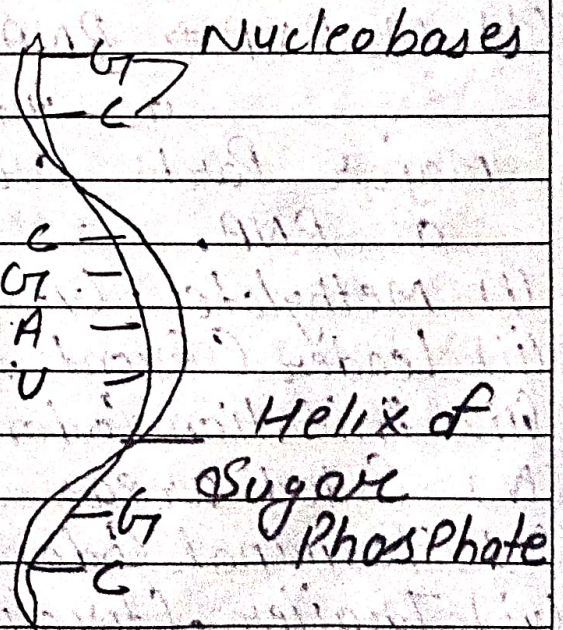 Nucleobases
G
C
C
G
A
U
Helix of
Sugar
Phosphate
G
C